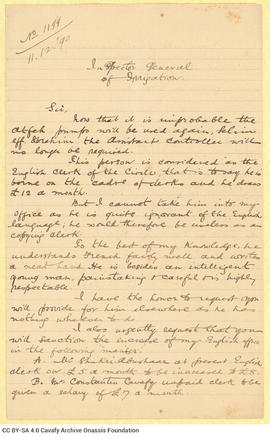 No 1199
11.12.90
Inspector General
of Irrigation.
Sir,
Now that it is improbable the
Atfeh pumps will be used again,
Ibrahim the Assistant Controller will
no longer be required.
This person is considered as the
English Clerk of the Circle, that is to say he is
borne on the cadre of clerks and he draws
£12 a month.
But I cannot take him into my
office as he is quite ignorant of the English
language; he would therefore be useless as an
copying clerk.
To the best of my knowledge, he
understands French fairly well and writes
a neat hand. He is besides an intelligent
young man, painstaking & careful & is highly
respectable.
I have the honor to request you
will provide for him elsewhere as he has
nothing whatever to do.
I also urgently request that you
will sanction the increase of my English office
in the following manner.
A. Mr at present English
clerk on £5 a month to be increased to £8.
B. Mr Constantin Cavafy unpaid clerk to be
given a salary of £7 a month.
CC BY-SA 4.0 Cavafy Archive Onassis Foundation